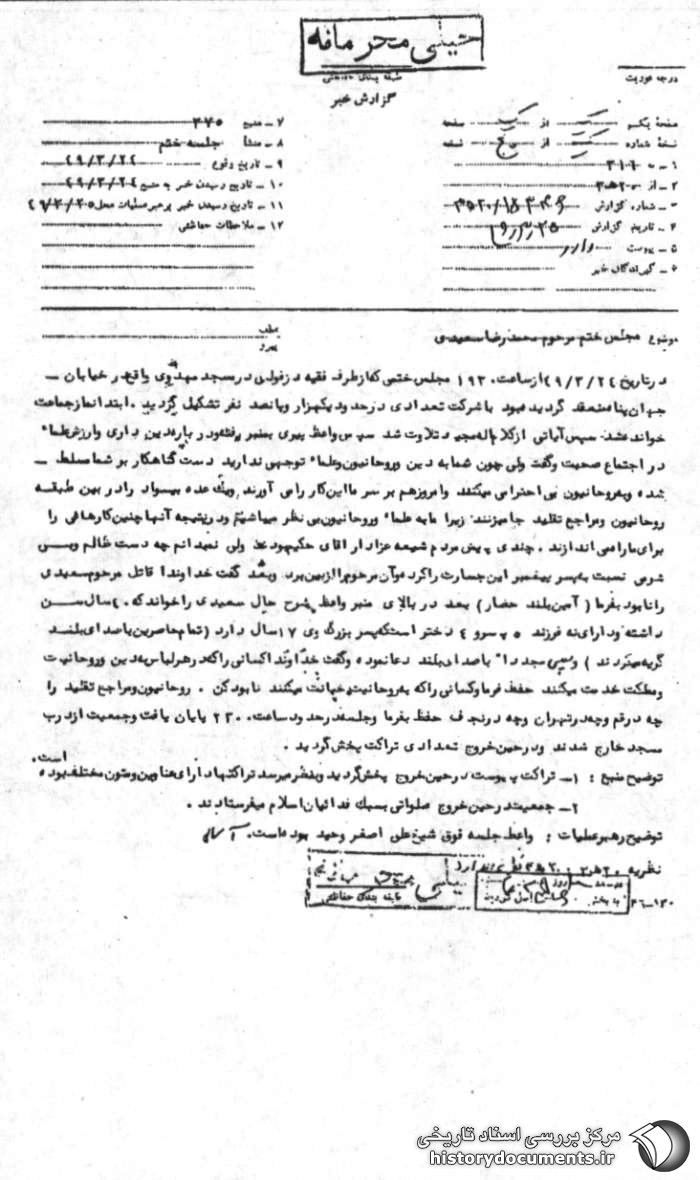 خیلی محرمانه
درجه فوریت
طبقه بندی حفاظتی
گزارش خبر
صفحه یکم از صفحه
نسخه شماره از نسخه
۱ - به ۳۱۱
۲ - از ۲۰ ه‍ ۳
۳ - شماره گزارش
۴ - تاریخ گزارش
۵ - پیوست دارد
۶ - گیرندگان خبر
۷ - منبع ۳۷۵
۸ - منشأ جلسه ختم
۹ - تاریخ وقوع ۴۹/۳/۲۴
۱۰ - تاریخ رسیدن خبر به منبع ۴۹/۳/۲۴
۱۱ - تاریخ رسیدن خبر برهبر عملیات محل ۴۹/۳/۲۵
۱۲ - ملاحظات حفاظتی
موضوع مجلس ختم مرحوم محمدرضا سعیدی
عطف
پیرو
در تاریخ ۴۹/۳/۲۴ از ساعت ۱۹۳۰ مجلس ختمی که از طرف فقیه دزفولی در مسجد مهدوی واقع در خیابان -
جهان پناه منعقد گردیده بود با شرکت تعدادی در حدود یکهزار و پانصد نفر تشکیل گردید . ابتدا نماز جماعت
خوانده شد سپس آیاتی از کلام اله مجید تلاوت شد سپس واعظ پیری بمنبر رفته و در باره دین داری و ارزش علماء
در اجتماع صحبت و گفت ولی چون شما به دین و روحانیون و علماء توجهی ندارید دست گناهکار بر شما مسلط -
شده و به روحانیون بی احترامی میکنند و امروز هم بر سر ما این کار را می آورند و یک عده بیسواد را در بین طبقه
روحانیون و مراجع تقلید جا میزنند زیرا ما به علماء و روحانیون بی نظر میباشیم و در نتیجه آنها چنین کارهائی را
برای ما راه می اندازند . چندی پیش مردم شیعه عزادار آقای حکیم بودند ولی نمیدانم چه دست ظالم و بی
شرمی نسبت به پسر پیغمبر این جسارت را کرد و آن مرحوم را از بین برد و بعد گفت خداوندا قاتل مرحوم سعیدی
را نابود بفرما ( آمین بلند حضار ) بعد در بالای منبر واعظ شرح حال سعیدی را خواند که ۴۰ سال سن
داشته و دارای نه فرزند ۵ پسر و ۴ دختر است که پسر بزرگ وی ۱۷ سال دارد ( تمام حاضرین با صدای بلند
گریه میکردند ) و سپس مجدداً با صدای بلند دعا نموده و گفت خداوندا کسانی را که در هر لباس به دین و روحانیت
و مملکت خدمت میکنند حفظ فرما و کسانی را که به روحانیت خیانت میکنند نابود کن . روحانیون و مراجع تقلید را
چه در قم و چه در تهران و چه در نجف حفظ بفرما و جلسه در حدود ساعت ۲۳۰ پایان یافت و جمعیت از درب
مسجد خارج شدند و در حین خروج تعدادی تراکت پخش گردید .
توضیح منبع : ۱- تراکت پیوست در حین خروج پخش گردید و بنظر میرسد تراکتها دارای عناوین و متون مختلف بوده است.
۲- جمعیت در حین خروج صلواتی بسبک فدائیان اسلام میفرستادند .
توضیح رهبر عملیات : واعظ جلسه فوق شیخ علی اصغر وحید بوده است.
نظریه
طبقه بندی حفاظتی
۳۶-۱۳۰
مرکز بررسی اسناد تاریخی
historydocuments.ir